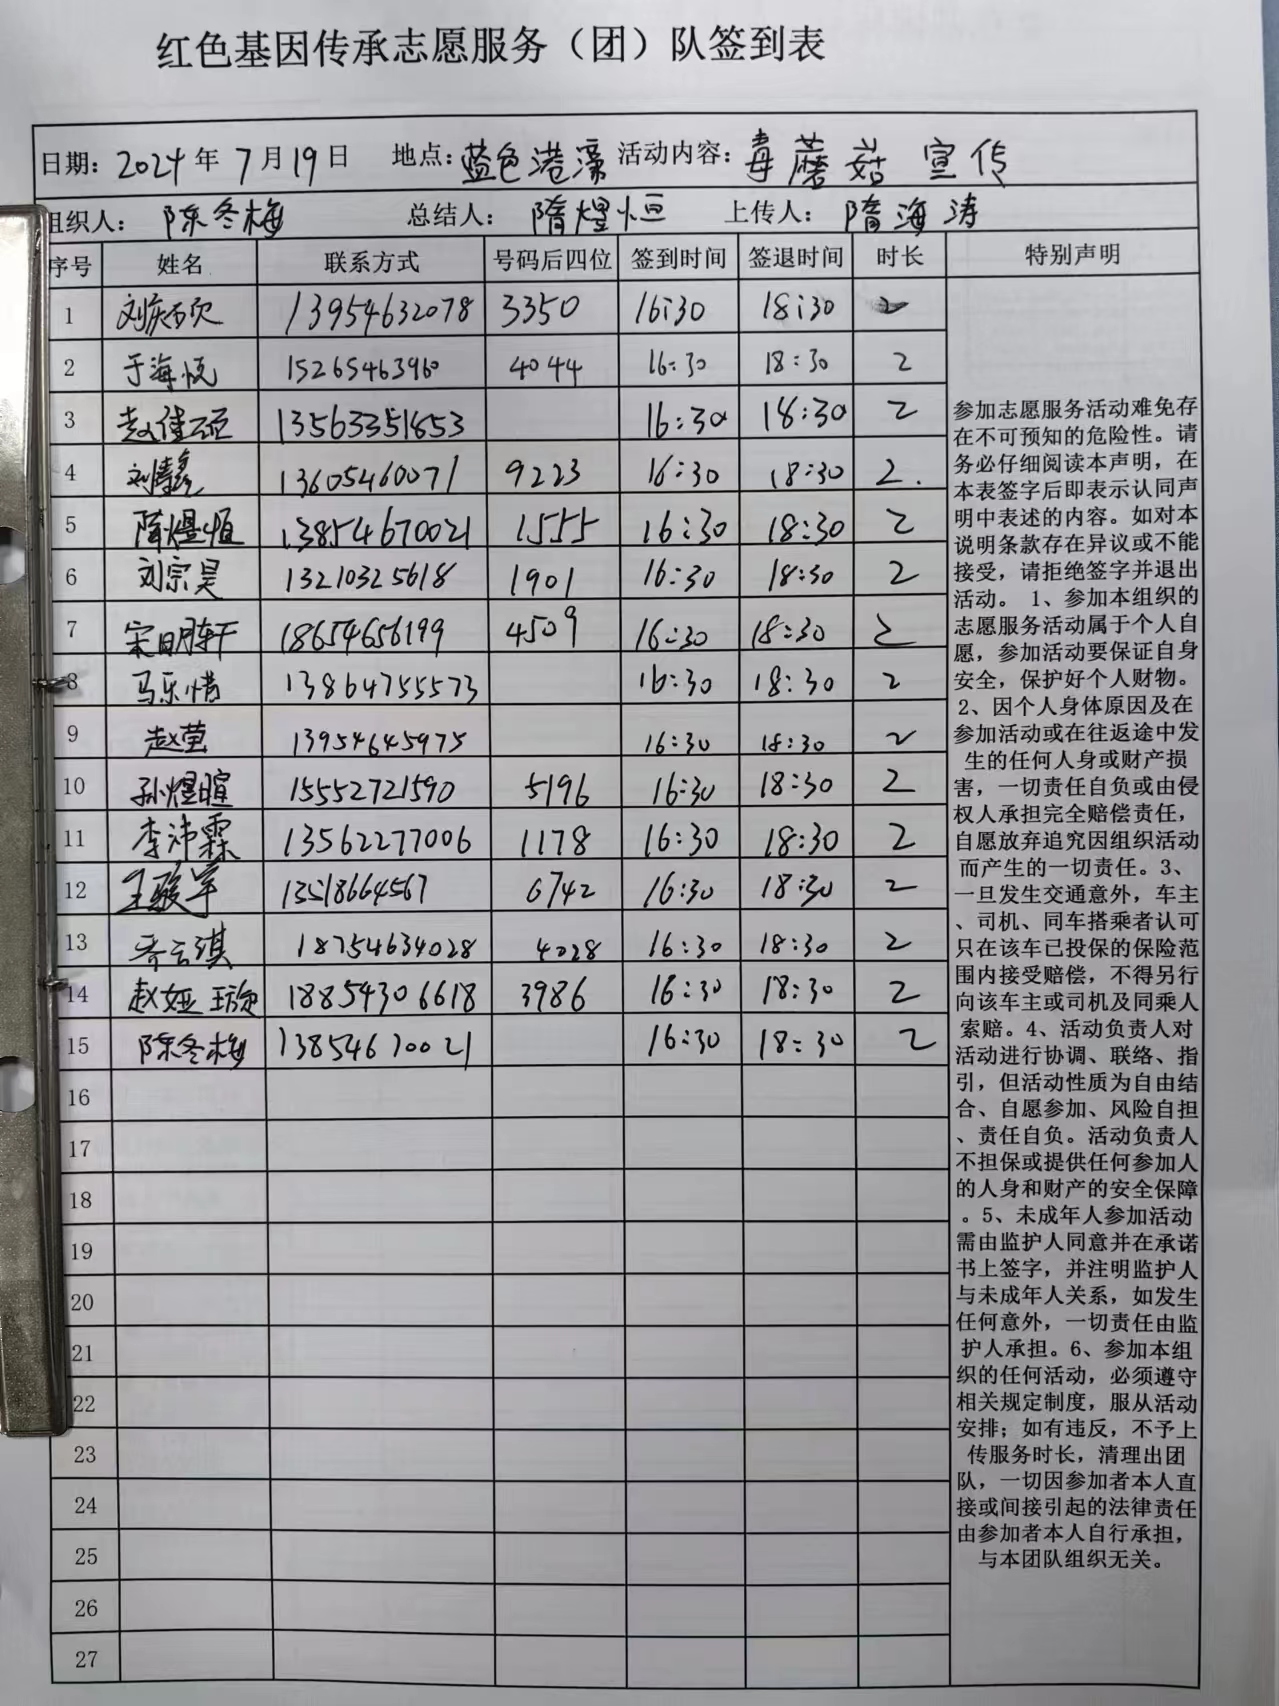 红色基因传承志愿服务（团）队签到表
日期：2024年7月19日 地点：蓝色港湾 活动内容：毒蘑菇宣传
组织人：陈冬梅 总结人：隋煜恒 上传人：隋海涛
序号 姓名 联系方式 号码后四位 签到时间 签退时间 时长 特别声明
1 13954632078 3350 16:30 18:30 2
2 于海悦 15265463960 4044 16:30 18:30 2
3 赵佳硕 13563351853 16:30 18:30 2
4 13605460071 9223 16:30 18:30 2.
5 隋煜恒 13854670021 1555 16:30 18:30 2
6 刘宗昊 13210325618 1901 16:30 18:30 2
7 宋明轩 18654656199 4509 16:30 18:30 2
8 马乐惜 13864755573 16:30 18:30 2
9 赵莹 13954645975 16:30 18:30 2
10 孙煜暄 15552721590 5196 16:30 18:30 2
11 李沛霖 13562277006 1178 16:30 18:30 2
12 13518664567 6742 16:30 18:30 2
13 齐云淇 18754634028 4028 16:30 18:30 2
14 赵娅璇 18854306618 3986 16:30 18:30 2
15 陈冬梅 13854670021 16:30 18:30 2
16
17
18
19
20
21
22
23
24
25
26
27
参加志愿服务活动难免存
在不可预知的危险性。请
务必仔细阅读本声明，在
本表签字后即表示认同声
明中表述的内容。如对本
说明条款存在异议或不能
接受，请拒绝签字并退出
活动。 1、参加本组织的
志愿服务活动属于个人自
愿，参加活动要保证自身
安全，保护好个人财物。
2、因个人身体原因及在
参加活动或在往返途中发
生的任何人身或财产损
害，一切责任自负或由侵
权人承担完全赔偿责任，
自愿放弃追究因组织活动
而产生的一切责任。3、
一旦发生交通意外，车主
、司机、同车搭乘者认可
只在该车已投保的保险范
围内接受赔偿，不得另行
向该车主或司机及同乘人
索赔。4、活动负责人对
活动进行协调、联络、指
引，但活动性质为自由结
合、自愿参加、风险自担
、责任自负。活动负责人
不担保或提供任何参加人
的人身和财产的安全保障
。5、未成年人参加活动
需由监护人同意并在承诺
书上签字，并注明监护人
与未成年人关系，如发生
任何意外，一切责任由监
护人承担。6、参加本组
织的任何活动，必须遵守
相关规定制度，服从活动
安排；如有违反，不予上
传服务时长，清理出团
队，一切因参加者本人直
接或间接引起的法律责任
由参加者本人自行承担，
与本团队组织无关。